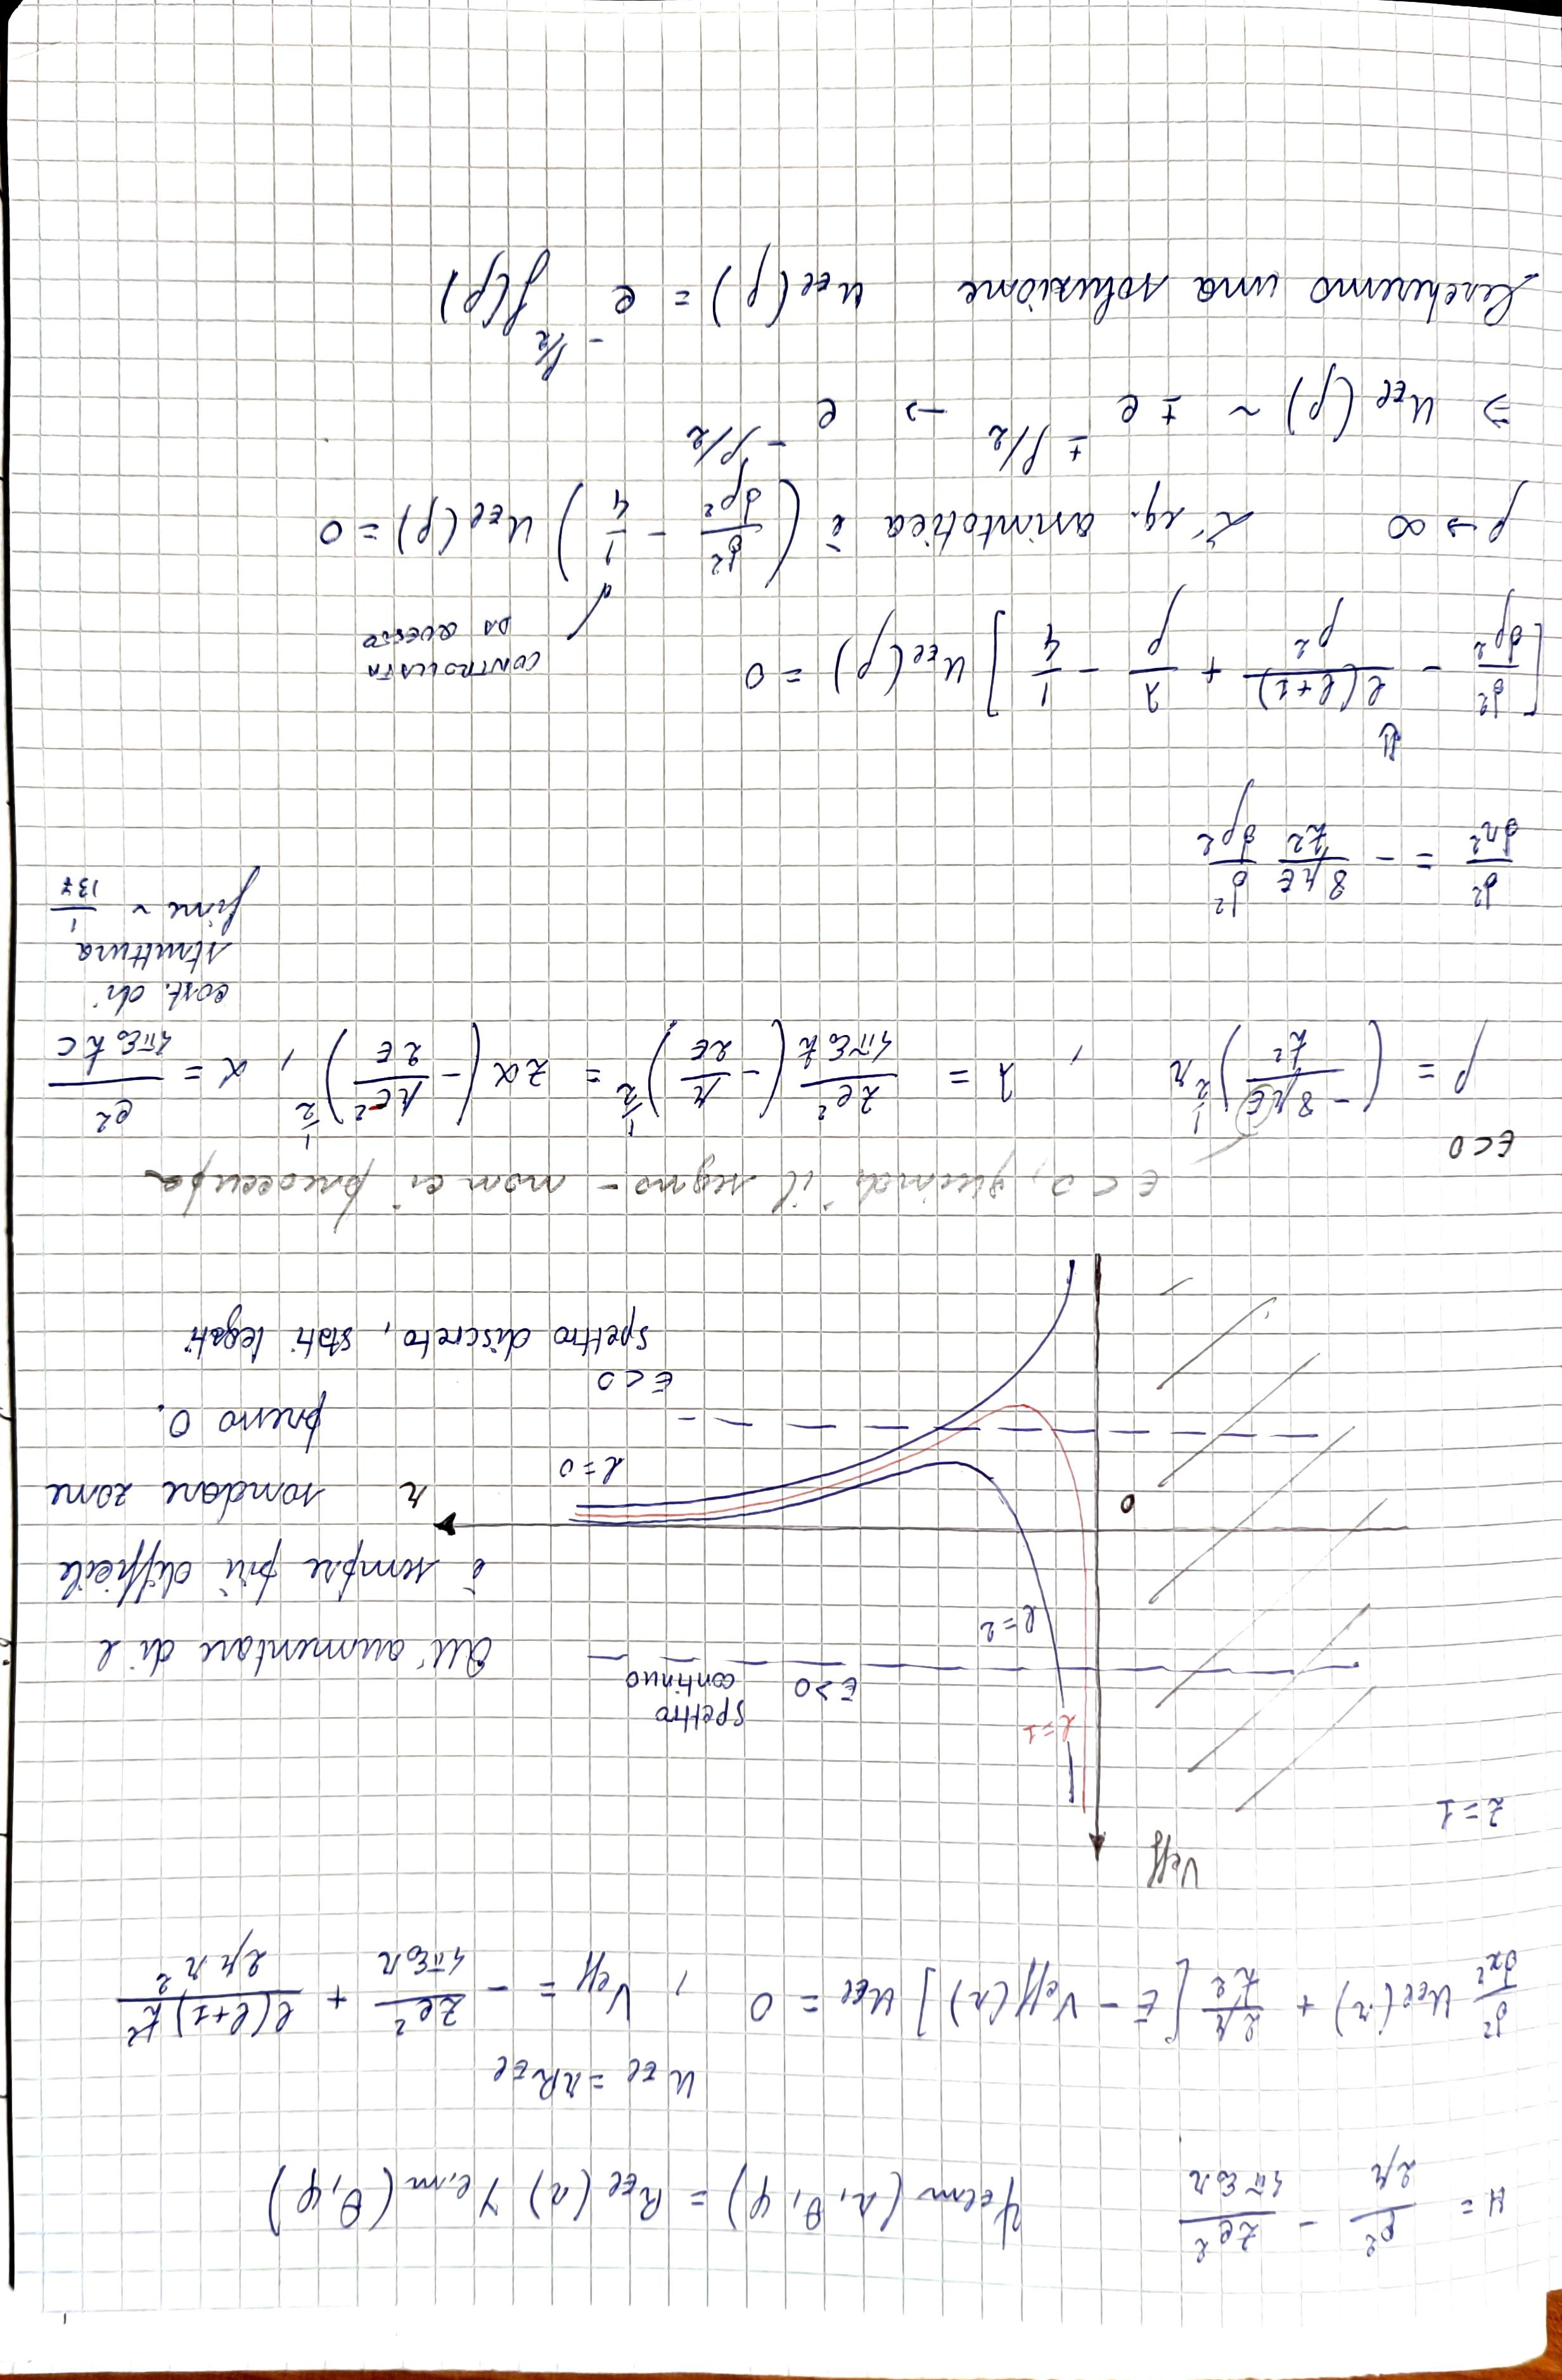 H = p²/2μ - Ze²/4πε₀r    ψ_Elm (r, θ, φ) = R_El (r) Y_l,m (θ, φ)
u_El = r R_El
d²/dx² u_El(r) + 2μ/ħ² [E - Veff(r)] u_El = 0 , Veff = - Ze²/4πε₀r + l(l+1)ħ²/2μr²
Veff
z=1
l=1
spettro
continuo
E>0
l=2
All'aumentare di l
è sempre più difficile
sondare zone
presso 0.
0
r
l=0
E<0
spettro discreto, stati legati
E<0, quindi il segno - non ci preoccupa
E<0
ρ = (- 8μE/ħ²)^½ r , λ = Ze²/4πε₀ħ (- μ/2E)^½ = Zα (- μc²/2E)^½ , α = e²/4πε₀ħc
cost. di
struttura
fine ~ 1/137
d²/dr² = - 8μE/ħ² d²/dρ²
⇓
[d²/dρ² - l(l+1)/ρ² + λ/ρ - 1/4] u_El(ρ) = 0
CONTROLLATA
DA QUESTO
ρ → ∞ L'eq. asintotica è (d²/dρ² - 1/4) u_El(ρ) = 0
⇒ u_El(ρ) ~ ± e^(±ρ/2) → e^(-ρ/2)
Cercheremo una soluzione u_El(ρ) = e^(-ρ/2) f(ρ)